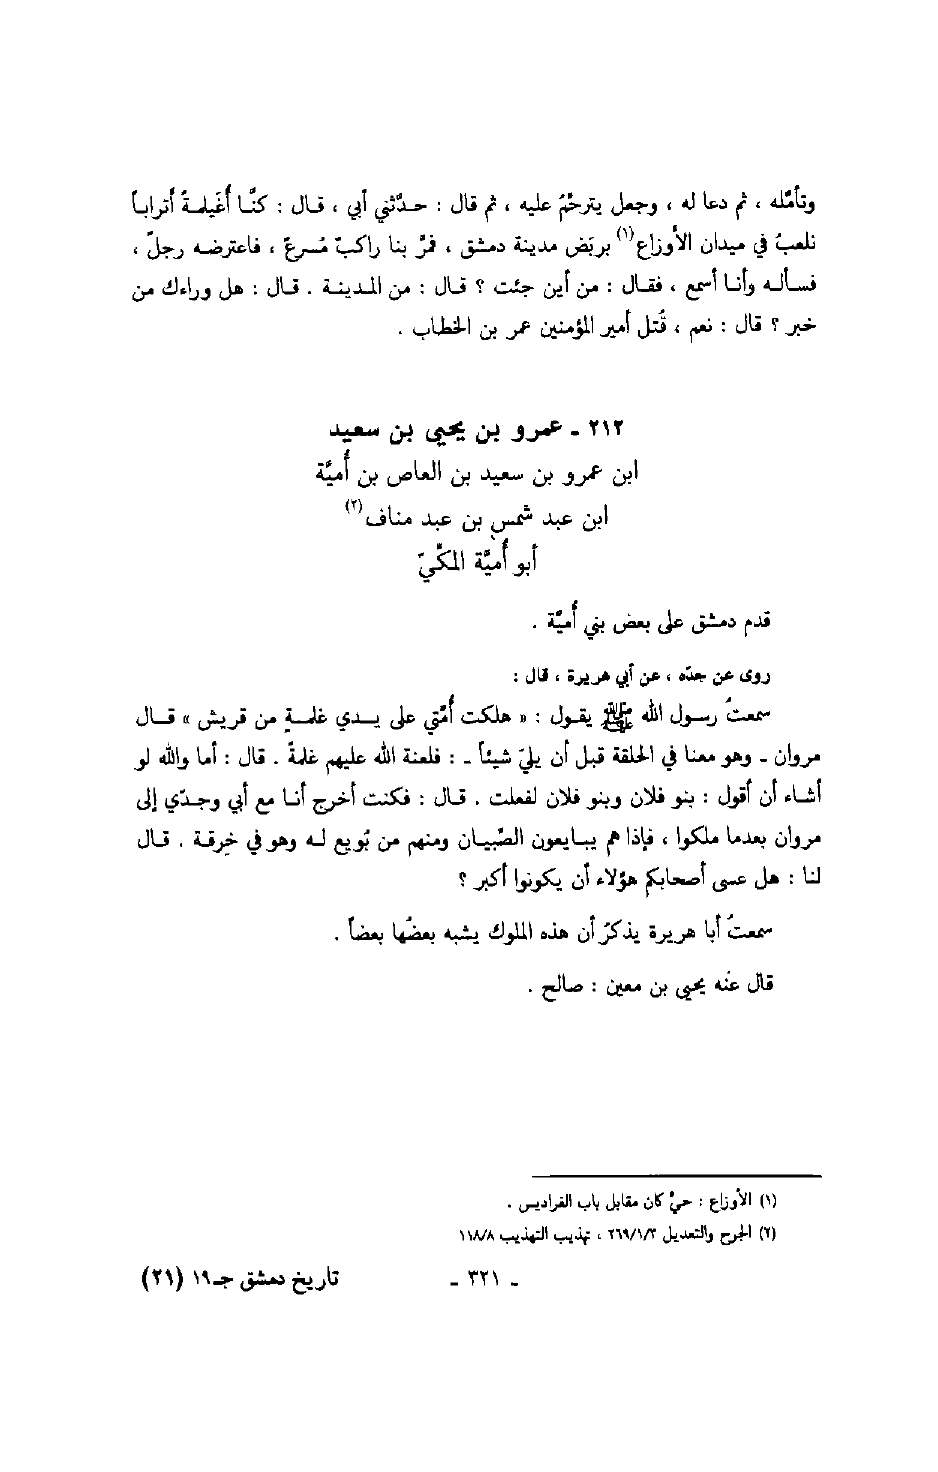 وتأمَّله ، ثم دعا له ، وجعل يترحَّمُ عليه ، ثم قال : حدَّثني أبي ، قال : كنَّا أُغَيلمةً أتراباً
نلعبُ في ميدان الأوزاع(١) بربَض مدينة دمشق ، فمرَّ بنا راكبٌ مُسرعٌ ، فاعترضه رجلٌ ،
فسأله وأنا أسمع ، فقال : من أين جئت ؟ قال : من المدينة . قال : هل وراءك من
خبر ؟ قال : نعم ، قُتل أمير المؤمنين عمر بن الخطاب .
٢١٢ - عمرو بن يحيى بن سعيد
ابن عمرو بن سعيد بن العاص بن أُميَّة
ابن عبد شمس بن عبد مناف(٢)
أبو أُميَّة المكِّيّ
قدم دمشق على بعض بني أُميَّة .
روى عن جدّه ، عن أبي هريرة ، قال :
سمعتُ رسول الله ﷺ يقول : « هلكت أُمَّتي على يدي غلمةٍ من قريش » قال
مروان - وهو معنا في الحلقة قبل أن يليَ شيئاً - : فلعنة الله عليهم غلمةً . قال : أما والله لو
أشاء أن أقول : بنو فلان وبنو فلان لفعلت . قال : فكنت أخرج أنا مع أبي وجدّي إلى
مروان بعدما ملكوا ، فإذا هم يبايعون الصِّبيان ومنهم من بُويع له وهو في خرقة . قال
لنا : هل عسى أصحابكم هؤلاء أن يكونوا أكبر ؟
سمعتُ أبا هريرة يذكرُ أن هذه الملوك يشبه بعضُها بعضاً .
قال عنه يحيى بن معين : صالح .
(١) الأوزاع : حيٌّ كان مقابل باب الفراديس .
(٢) الجرح والتعديل ٢٦٩/١/٣ ، تهذيب التهذيب ١١٨/٨
- ٣٢١ - تاريخ دمشق جـ١٩ (٢١)